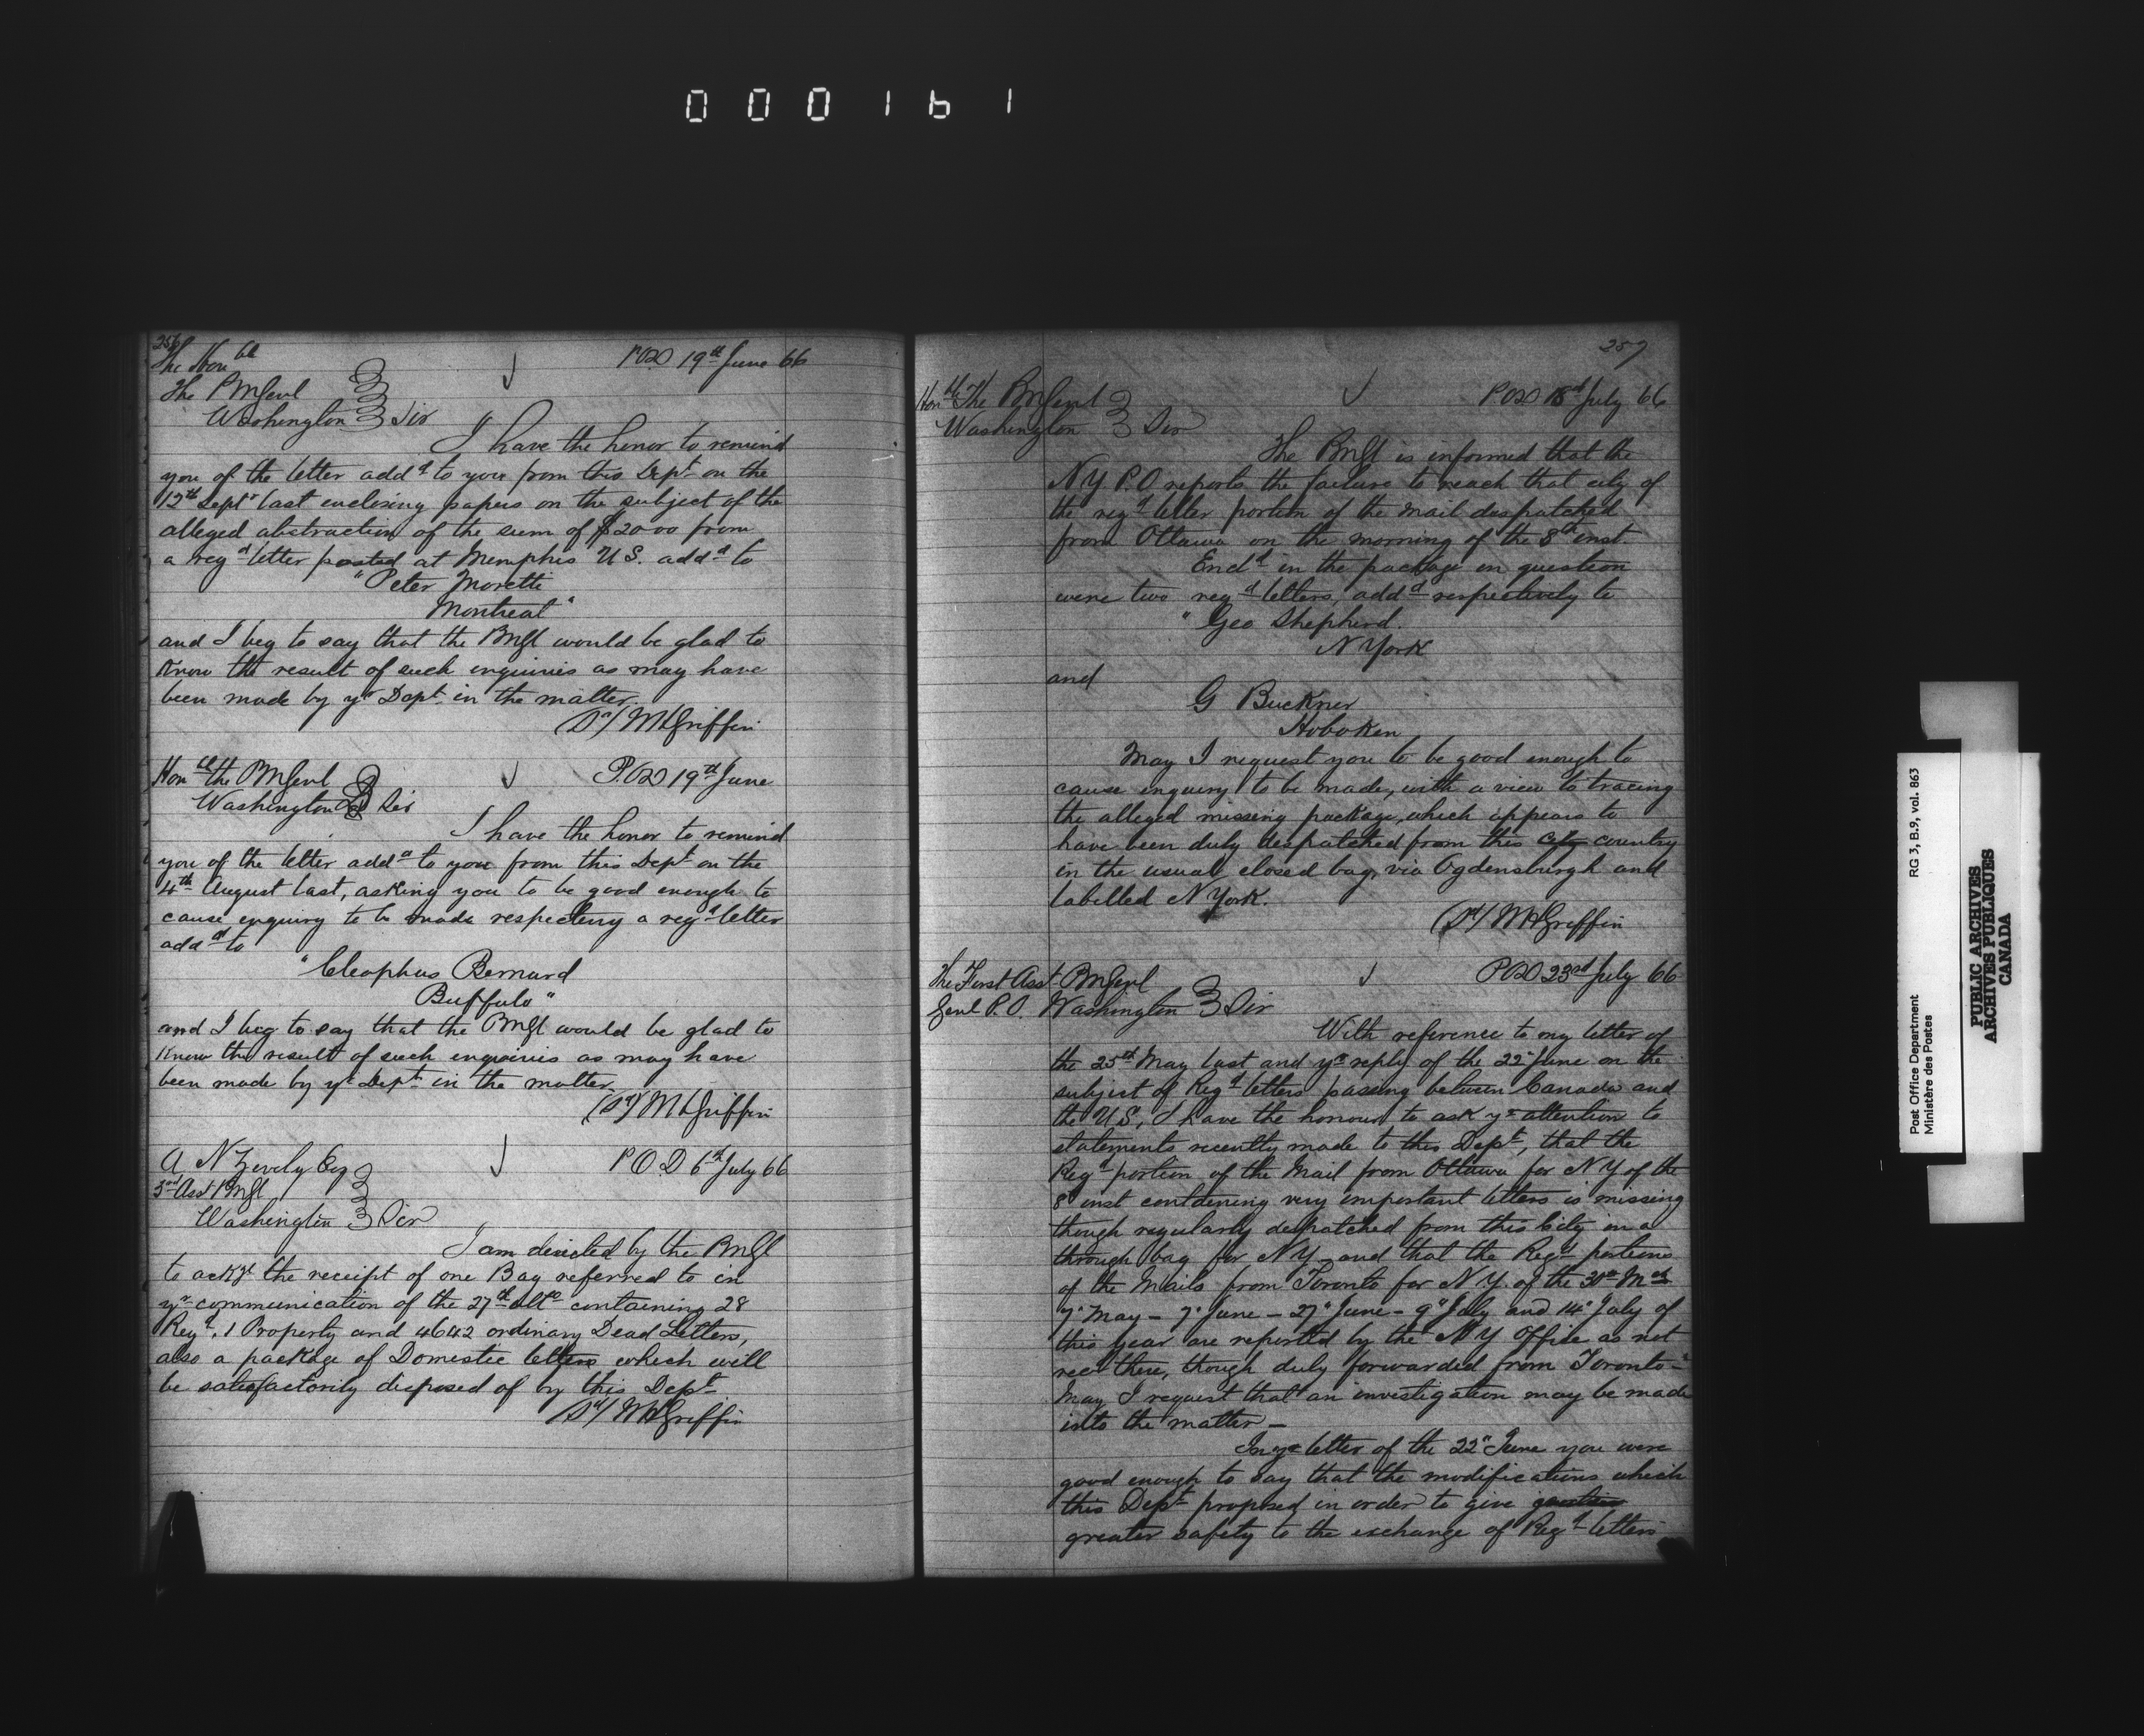 000161
256
The Honble
The PMGenl
Washington } Sir
POD 19th June 66
I have the honor to remind
you of the letter addd to you from this Dept on the
12th Septr last enclosing papers on the subject of the
alleged abstraction of the sum of $20.00 from
a regd letter posted at Memphis U S. addd to
"Peter Moretti
Montreal"
and I beg to say that the PMGl would be glad to
know the result of such enquiries as may have
been made by yr Dept in the matter
(Sd/ WHGriffin
Honble the PMGenl
Washington } Sir
P.OD 19th June
I have the honor to remind
you of the letter addd to you from this Dept on the
4th August last, asking you to be good enough to
cause enquiry to be made respecting a regd letter
addd to
"Cleophus Bernard
Buffalo"
and I beg to say that the PMGl would be glad to
know the result of such enquiries as may have
been made by yr Dept in the matter
(Sd/ WHGriffin
A N Zevely Esq
3rd Asst PMGl
Washington } Sir
P O D 6th July 66
I am directed by the PMGl
to ackge the receipt of one Bag referred to in
yr communication of the 27th ulto containing 28
Regd, 1 Property and 4642 ordinary Dead Letters,
also a package of Domestic letters which will
be satisfactorily disposed of by this Dept
(Sd/ WHGriffin
257
Honble The PMGenl
Washington } Sir
POD 18th July 66
The PMGl is informed that the
N Y P.O reports the failure to reach that city of
the regd letter portion of the mail despatched
from Ottawa on the morning of the 8th inst.
Encld in the package in question
were two regd letters, addd respectively to
"Geo Shepherd.
N York
and
G Buckner
Hoboken
May I request you to be good enough to
cause enquiry to be made, with a view to tracing
the alleged missing package, which appears to
have been duly despatched from this country
in the usual closed bag, via Ogdensburgh and
labelled N York.
(Sd/ WHGriffin
The First Asst PMGenl
Genl P.O. Washington } Sir
POD 23rd July 66
With reference to my letter of
the 25th May last and yr reply of the 22" June on the
subject of Regd letters passing between Canada and
the U S, I have the honour to ask yr attention to
statements recently made to this Dept, that the
Regd portion of the Mail from Ottawa for N Y of the
8" inst containing very important letters is missing
though regularly despatched from this City in a
through bag for N Y - and that the Regd portions
of the Mails from Toronto for N.Y. of the 30th Mch
7" May - 7" June - 27" June - 9" July and 14" July of
this year are reported by the N Y Office as not
recd there, though duly forwarded from Toronto -
May I request that an investigation may be made
into the matter -
In yr letter of the 22" June you were
good enough to say that the modifications which
this Dept proposed in order to give
greater safety to the exchange of Regd letters
Post Office Department
Ministère des Postes
RG 3, B.9, vol. 863
PUBLIC ARCHIVES
ARCHIVES PUBLIQUES
CANADA